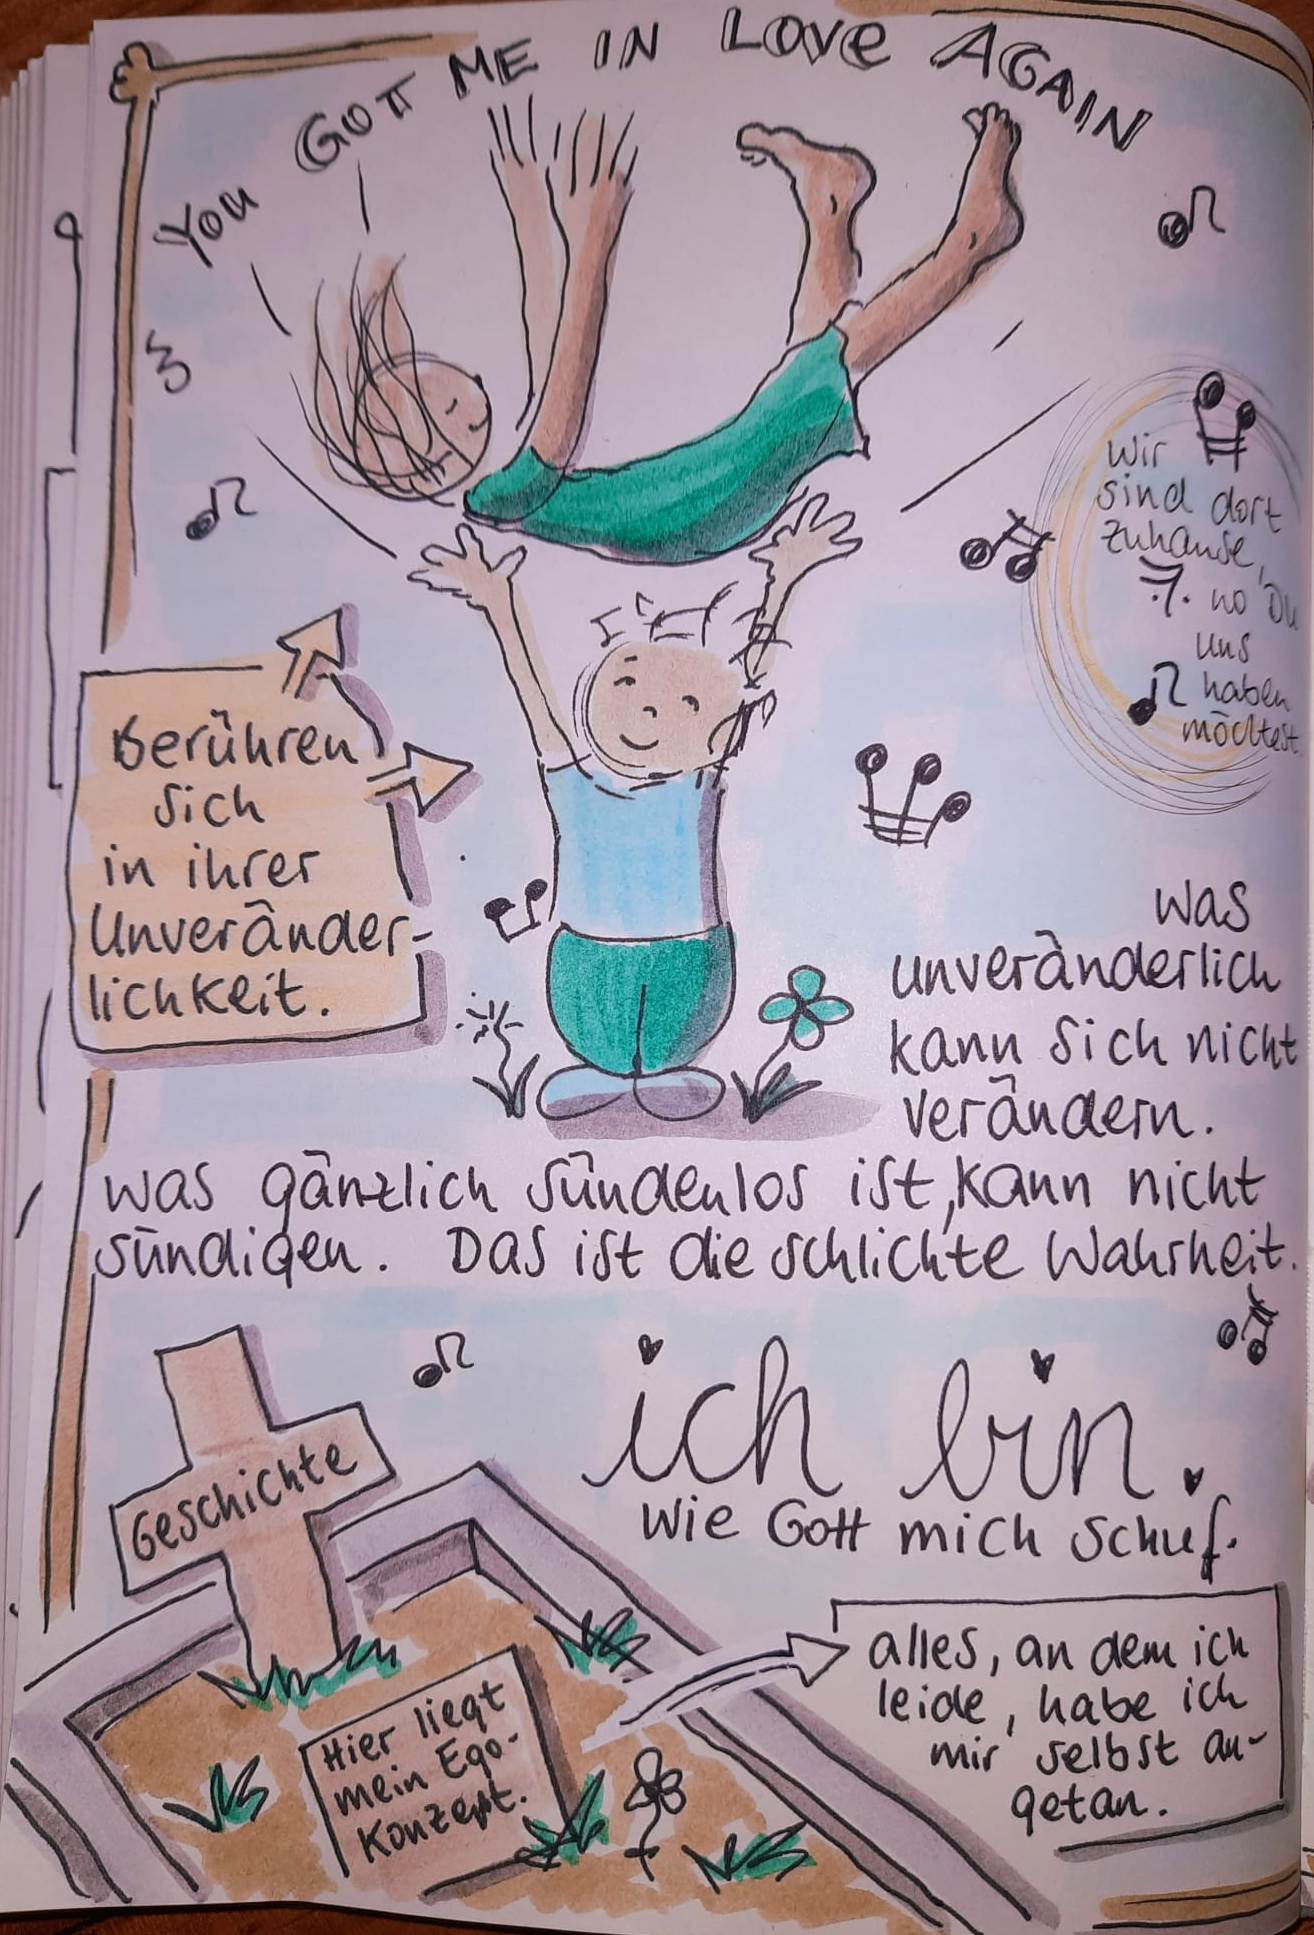 You GOTT ME IN LOVE AGAIN
Wir
sind dort
zuhause,
wo Du
uns
haben
möchtest
berühren
sich
in ihrer
Unveränder-
lichkeit.
was
unveränderlich
kann sich nicht
verändern.
was gänzlich sündenlos ist, kann nicht
sündigen. Das ist die schlichte Wahrheit.
ich bin.
wie Gott mich schuf.
Geschichte
Hier liegt
mein Ego-
Konzept.
alles, an dem ich
leide, habe ich
mir selbst an-
getan.